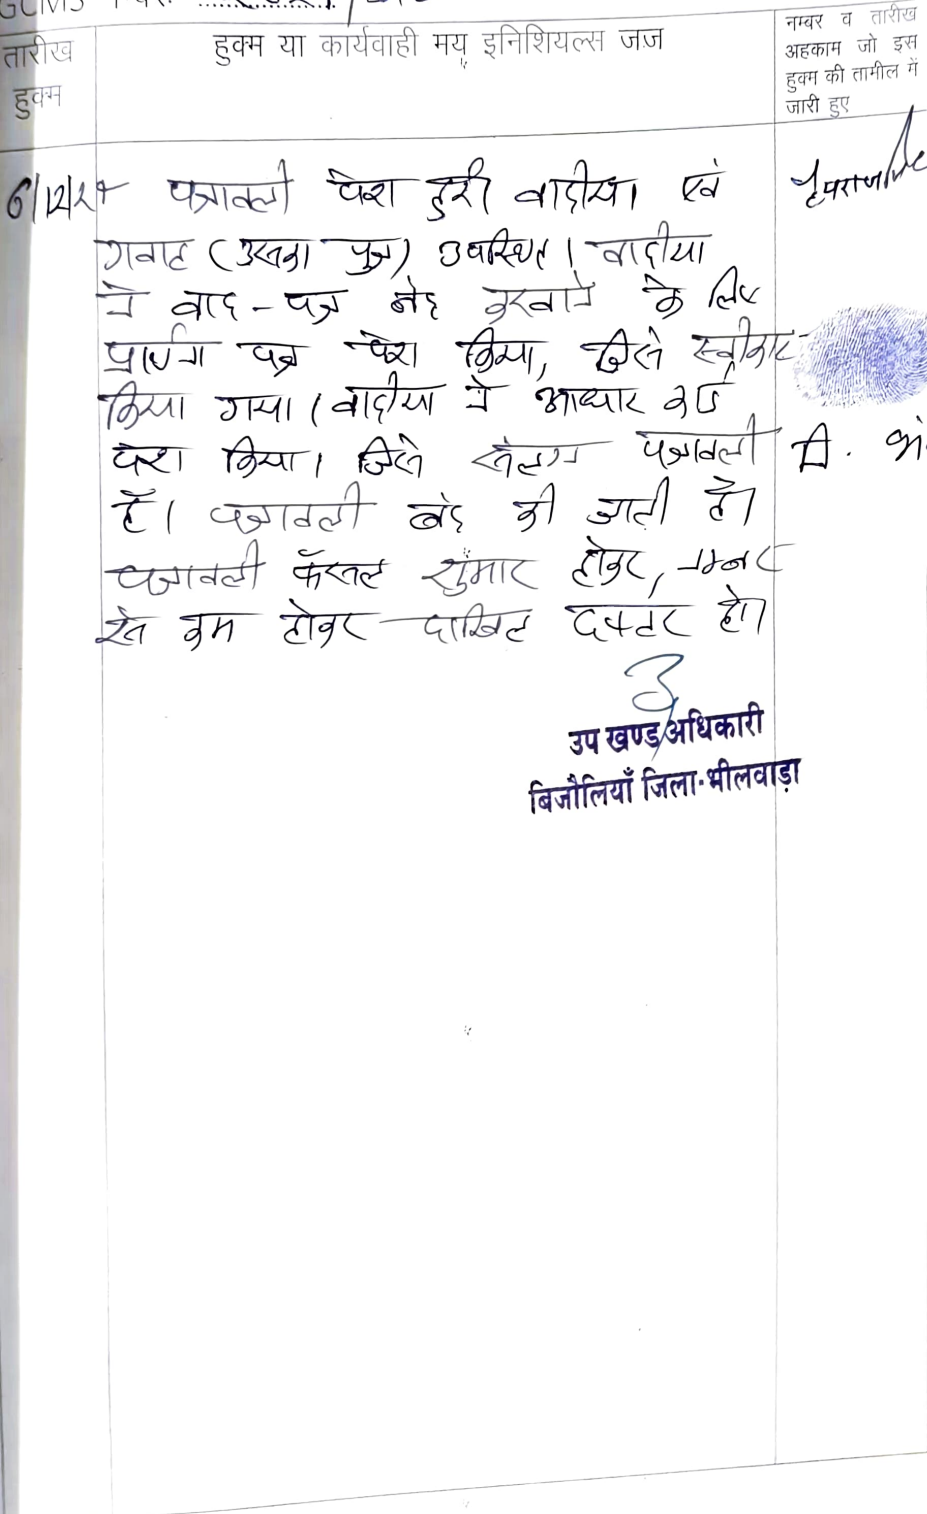 तारीख हुक्म
हुक्म या कार्यवाही मय इनिशियल्स जज
नम्बर व तारीख
अहकाम जो इस
हुक्म की तामील में
जारी हुए
6/12/24 पत्रावली पेश हुई वादीया एवं
गवाह (उसका पुत्र) उपस्थित। वादीया
ने वाद-पत्र बंद करवाने के लिए
प्रार्थना पत्र पेश किया, जिसे स्वीकार
किया गया। वादीया ने आधार कार्ड
पेश किया। जिसे संलग्न पत्रावली
है। पत्रावली बंद की जाती है।
पत्रावली फैसल शुमार होकर, नम्बर
से कम होकर दाखिल दफ्टर हो।
नि. अं.
उप खण्ड अधिकारी
बिजौलियाँ जिला-भीलवाड़ा